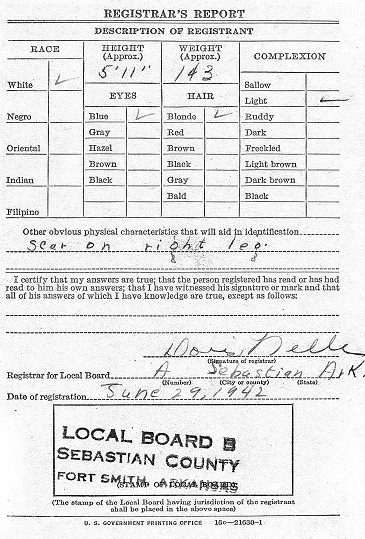 REGISTRAR'S REPORT
DESCRIPTION OF REGISTRANT
RACE HEIGHT (Approx.) WEIGHT (Approx.) COMPLEXION
5'11" 143
White ✓ Sallow
EYES HAIR Light ✓
Negro Blue ✓ Blonde ✓ Ruddy
Gray Red Dark
Oriental Hazel Brown Freckled
Brown Black Light brown
Indian Black Gray Dark brown
Bald Black
Filipino
Other obvious physical characteristics that will aid in identification
Scar on right leg.
I certify that my answers are true; that the person registered has read or has had
read to him his own answers; that I have witnessed his signature or mark and that
all of his answers of which I have knowledge are true, except as follows:
(Signature of registrar)
Registrar for Local Board A Sebastian Ark.
(Number) (City or county) (State)
Date of registration June 29, 1942
LOCAL BOARD B
SEBASTIAN COUNTY
FORT SMITH, ARKANSAS
(STAMP OF LOCAL BOARD)
(The stamp of the Local Board having jurisdiction of the registrant
shall be placed in the above space)
U. S. GOVERNMENT PRINTING OFFICE 16—21630-1